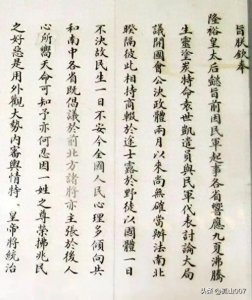 旨朕欽奉
隆裕皇太后懿旨前因民軍起事各省響應九夏沸騰
生靈塗炭特命袁世凱遣員與民軍代表討論大局
議開國會公決政體兩月以來尚無確當辦法南北
暌隔彼此相持商輟於途士露於野徒以國體一日
不決故民生一日不安今全國人民心理多傾向共
和南中各省既倡議於前北方諸將亦主張於後人
心所嚮天命可知予亦何忍因一姓之尊榮拂兆民
之好惡是用外觀大勢內審輿情特 皇帝將統治
头条 @孤山007